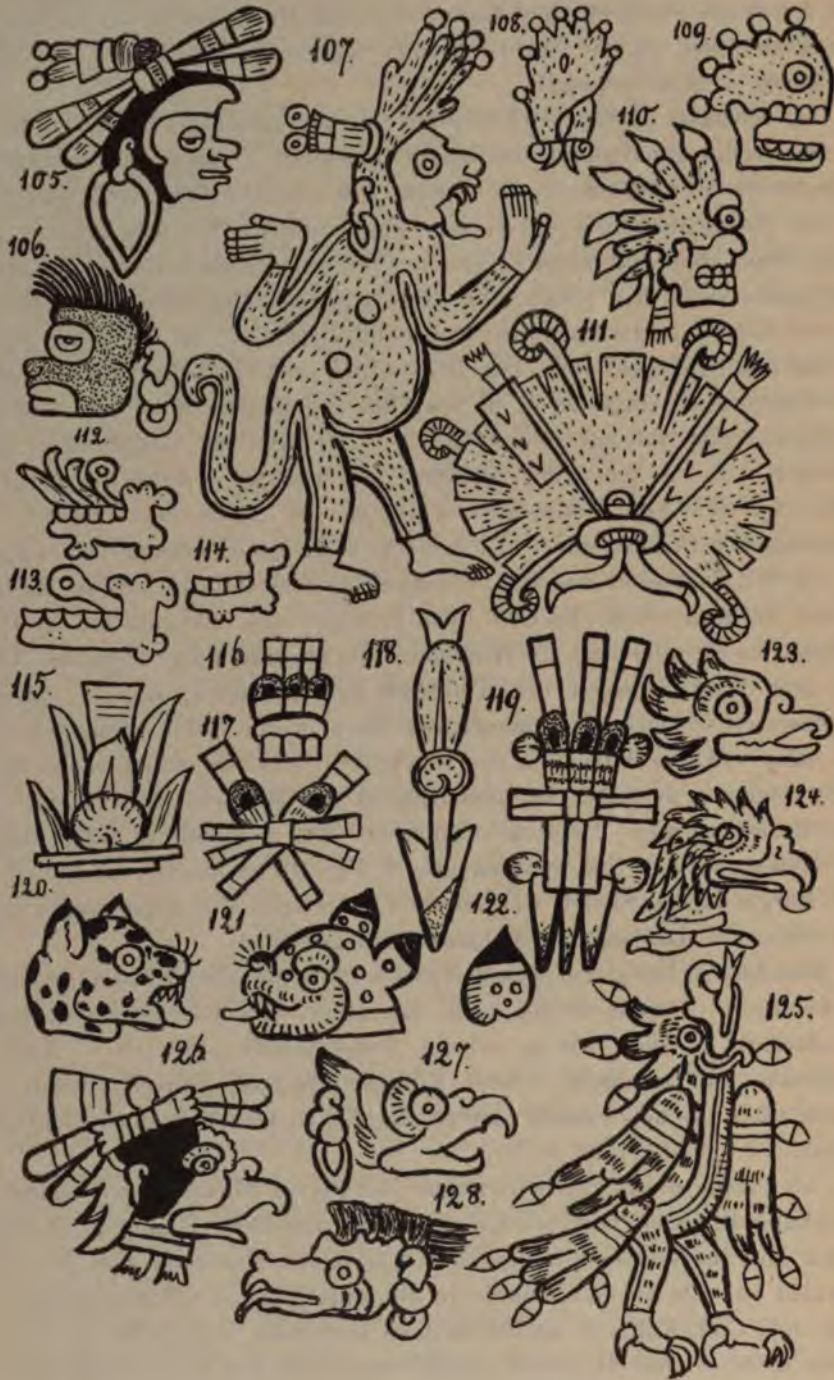 105.
106.
107.
108.
109.
110.
111.
112.
113.
114.
115.
116
117.
118.
119.
120.
121
122.
123.
124.
125.
126.
127.
128.